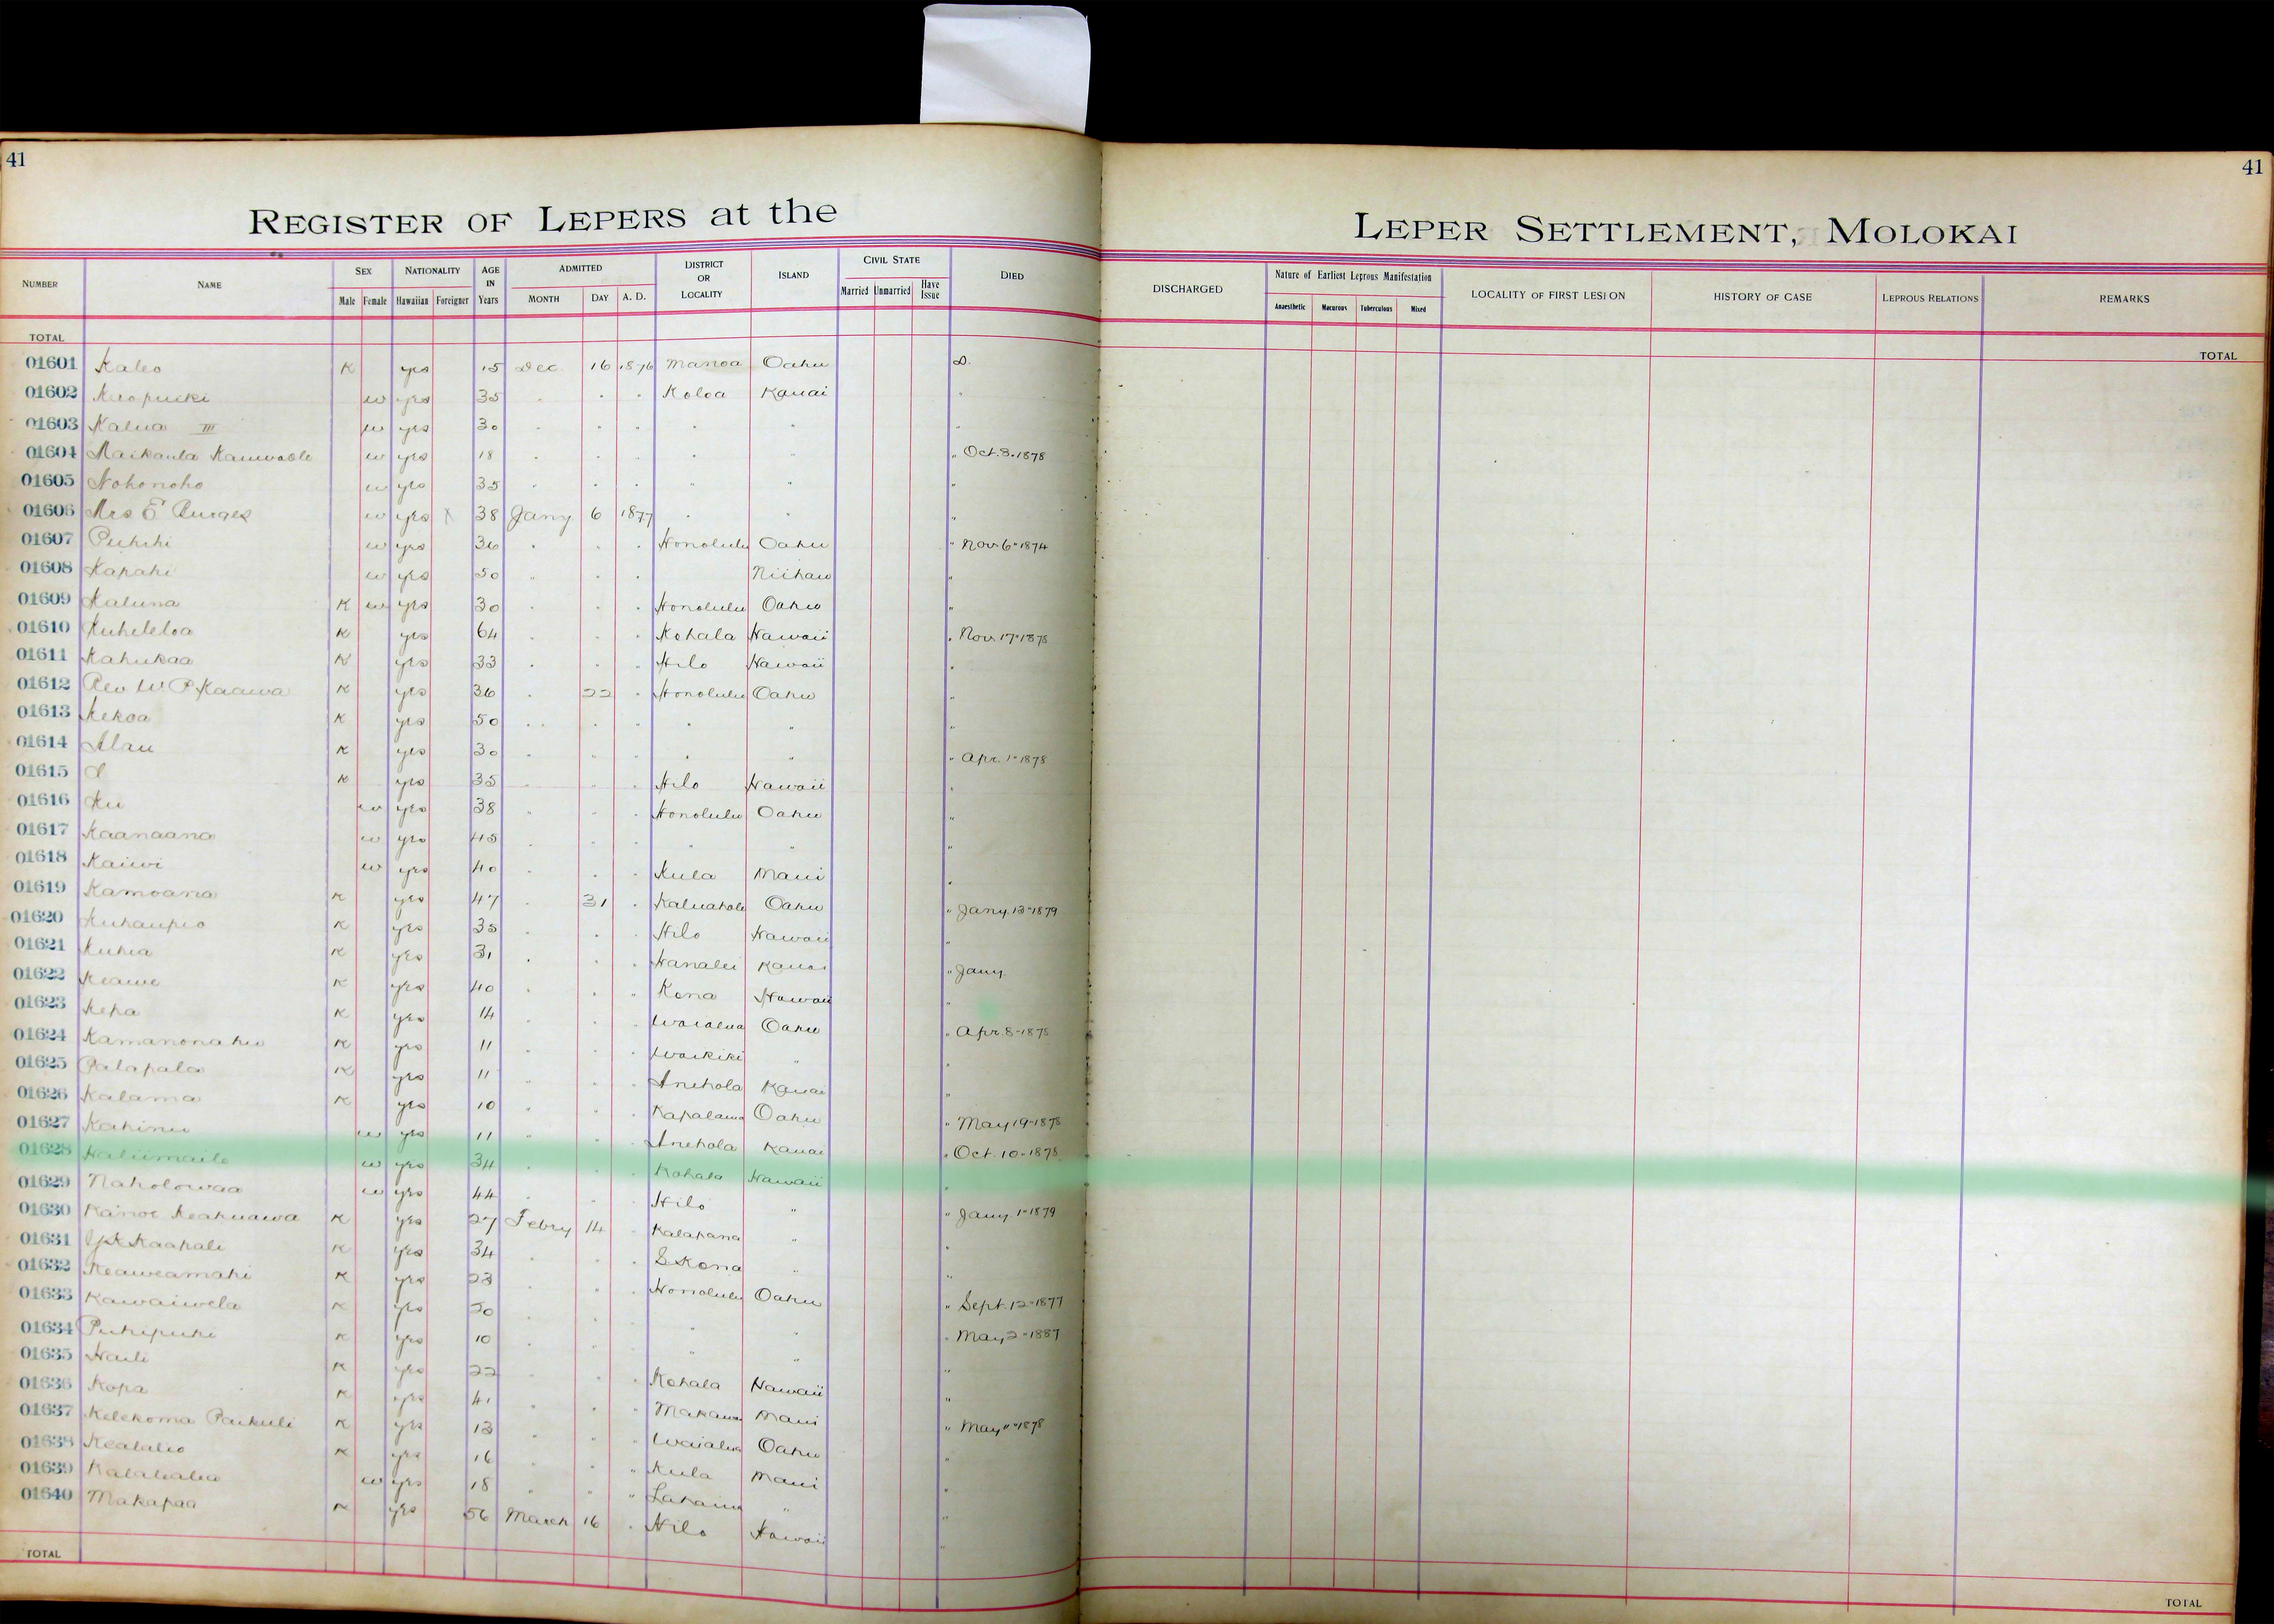 41
41
REGISTER OF LEPERS at the
LEPER SETTLEMENT, MOLOKAI
NUMBER NAME SEX Male Female NATIONALITY Hawaiian Foreigner AGE IN Years ADMITTED MONTH DAY A. D. DISTRICT OR LOCALITY ISLAND CIVIL STATE Married Unmarried Have Issue DIED
DISCHARGED Nature of Earliest Leprous Manifestation Anaesthetic Macurous Tuberculous Mixed LOCALITY OF FIRST LESION HISTORY OF CASE LEPROUS RELATIONS REMARKS
TOTAL
TOTAL
01601 Kaleo K yes 15 Dec. 16 1876 Manoa Oahu D.
01602 w yes 35 " " " Koloa Kauai "
01603 Kalua III w yes 30 " " " " " "
01604 Maikaula w yes 18 " " " " " " Oct. 3. 1878
01605 Nohonoho w yes 35 " " " " " "
01606 Mrs E Burges w yes X 38 Jany 6 1877 " " "
01607 Puhihi w yes 36 " " " Honolulu Oahu " Nov 6" 1874
01608 Kapahi w yes 50 " " " Niihau "
01609 Kaluna K w yes 30 " " " Honolulu Oahu "
01610 Kuheleloa K yes 64 " " " Kohala Hawaii " Nov 17" 1878
01611 Kahukaa K yes 33 " " " Hilo Hawaii "
01612 Rev W. P. Kaawa K yes 36 " 22 " Honolulu Oahu "
01613 Kekoa K yes 50 " " " " " "
01614 Alau K yes 30 " " " " " " Apr. 1" 1878
01615 K yes 35 " " " Hilo Hawaii "
01616 Ku w yes 38 " " " Honolulu Oahu "
01617 Kaanaana w yes 45 " " " " " "
01618 Kaiwi w yes 40 " " " Kula Maui "
01619 Kamoana K yes 47 " 31 " Oahu " Jany. 13" 1879
01620 Kuhaupio K yes 35 " " " Hilo Hawaii "
01621 Kuhia K yes 31 " " " Hanalei Kauai " Jany.
01622 Keawe K yes 40 " " " Kona Hawaii "
01623 Kepa K yes 14 " " " Waialua Oahu " Apr. 8" 1878
01624 K yes 11 " " " Waikiki " "
01625 Palapala K yes 11 " " " Anehola Kauai "
01626 Kalama K yes 10 " " " Kapalama Oahu " May 19" 1878
01627 Kahinu w yes 11 " " " Anehola Kauai " Oct. 10" 1878
01628 Kaliimaile w yes 34 " " " Kohala Hawaii "
01629 Naholowaa w yes 44 " " " Hilo " " Jany. 1" 1879
01630 Kainoe Keakuawa K yes 27 Febry 14 " Kalapana " "
01631 Kaahale K yes 34 " " " S Kona " "
01632 Keaweamahi K yes 23 " " " Honolulu Oahu " Sept. 12" 1877
01633 Kawaiwela K yes " " " " " " May 2" 1887
01634 Puhipuhi K yes 10 " " " " " "
01635 Haili K yes 22 " " " Kohala Hawaii "
01636 Kopa K yes 41 " " " Makawao Maui " May 11" 1878
01637 Kelekoma Paikuli K yes 13 " " " Waialua Oahu "
01638 Kealalio K yes 16 " " " Kula Maui "
01639 w yes 18 " " " Lahaina " "
01640 Makapaa K yes 56 March 16 " Hilo Hawaii "
TOTAL
TOTAL